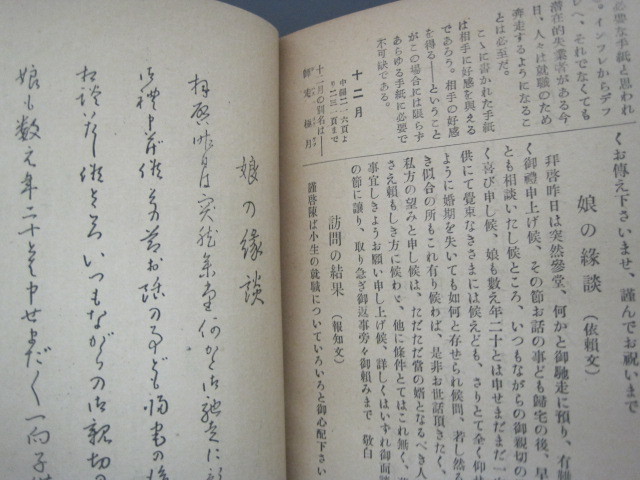 必要な手紙と思われ
る。インフレからデフ
レへ、それでなくても
潜在的失業者がある今
日、人々は就職のため
奔走するようになるこ
とは必至だ。
こゝに書かれた手紙
は相手に好感を與える
であろう。相手の好感
を得る――ということ
がこの場合には限らず
あらゆる手紙に必要で
不可缺である。
十二月
中綴二一六頁よ
り二三一頁まで
十二月の別名は――
師走 極月
くお傳え下さいませ、謹んでお祝いまで
娘の緣談 (依頼文)
拜啓昨日は突然參堂、何かと御馳走に預り、有難
く御禮申上げ候、その節お話の事ども歸宅の後、早
とも相談いたし候ところ、いつもながらの御親切の
く喜び申し候、娘も數え年二十とは申せまだまだ一
供にて覺束なきさまには候えども、さりとて全く仰せ
ように婚期を失いても如何と存ぜられ候間、若し然る
き似合の所もこれ有り候わば、是非お世話頂きたく、
私方の望みと申し候は、ただただ當の婿となるべき人
さえ頼もしき方に候わば、他に條件とてはこれ無く、
事宜しきようお願い申し上げ候、詳しくはいずれ御面談
の節に讓り、取り急ぎ御返事旁々御頼みまで 敬白
訪問の結果 (報知文)
謹啓陳ば小生の就職についていろいろと御心配下さい
娘の緣談
拜啓昨日は突然參堂何かと御馳走に
御禮申上げ候その節お話の事ども歸宅の後
相談いたし候ところいつもながらの御親切の
娘も数え年二十とは申せまだまだ一向子供